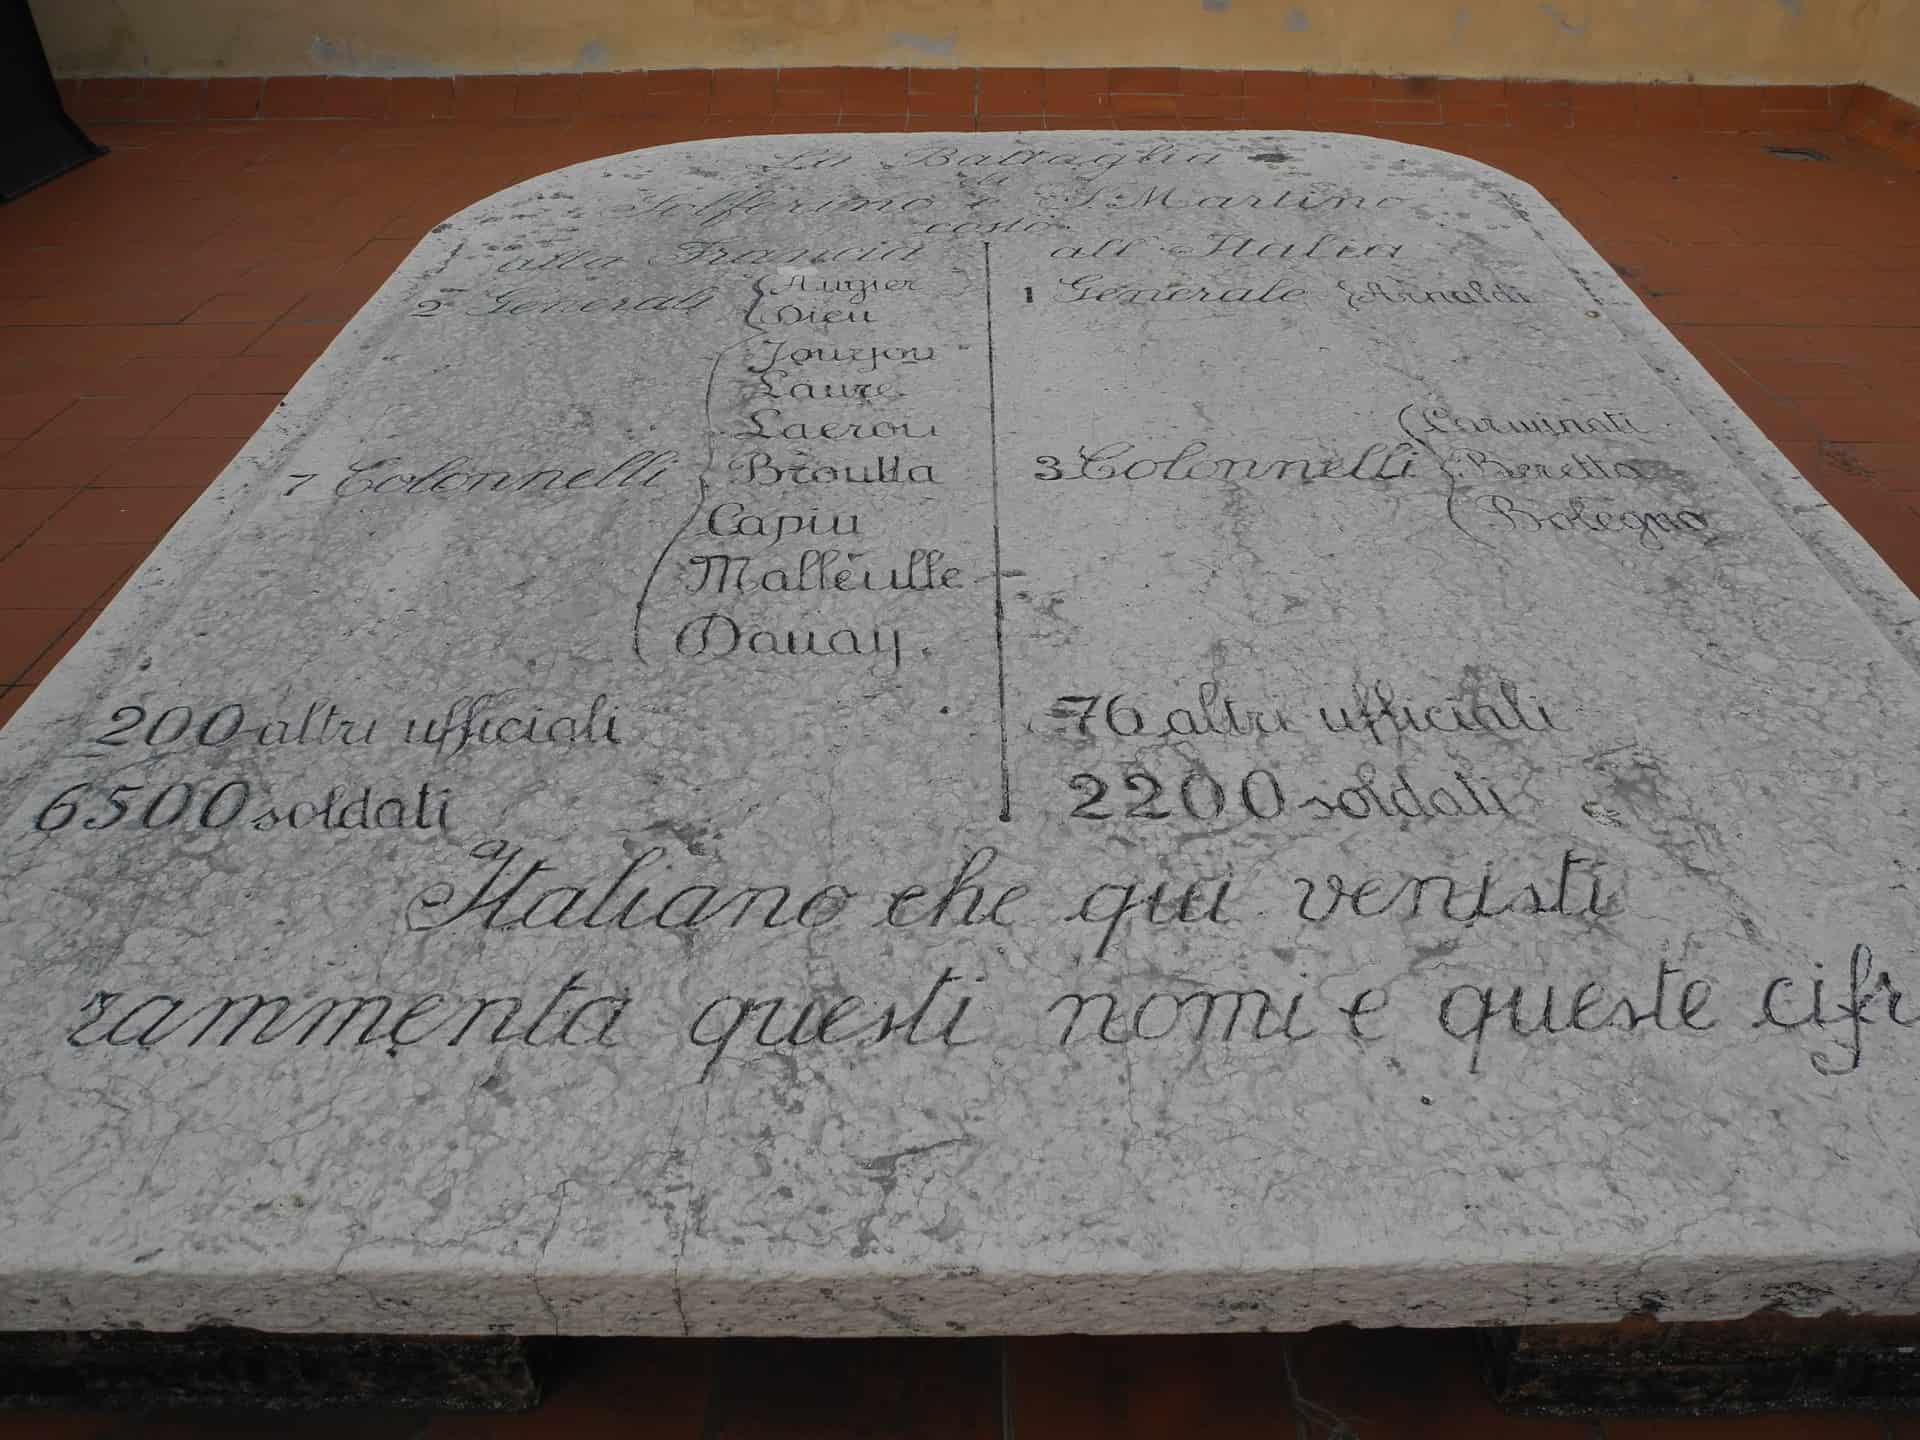 La Battaglia
di
Solferino e S. Martino
costò
alla Francia
2 Generali
Augier
Dieu
7 Colonnelli
Jourjou
Laure
Lacroii
Broutta
Capiu
Malleville
Douay.
200 altri ufficiali
6500 soldati
all'Italia
1 Generale Arnaldi
3 Colonnelli
Carminati
Beretta
Bolegno
76 altri ufficiali
2200 soldati
Italiano che qui venisti
rammenta questi nomi e queste cifr